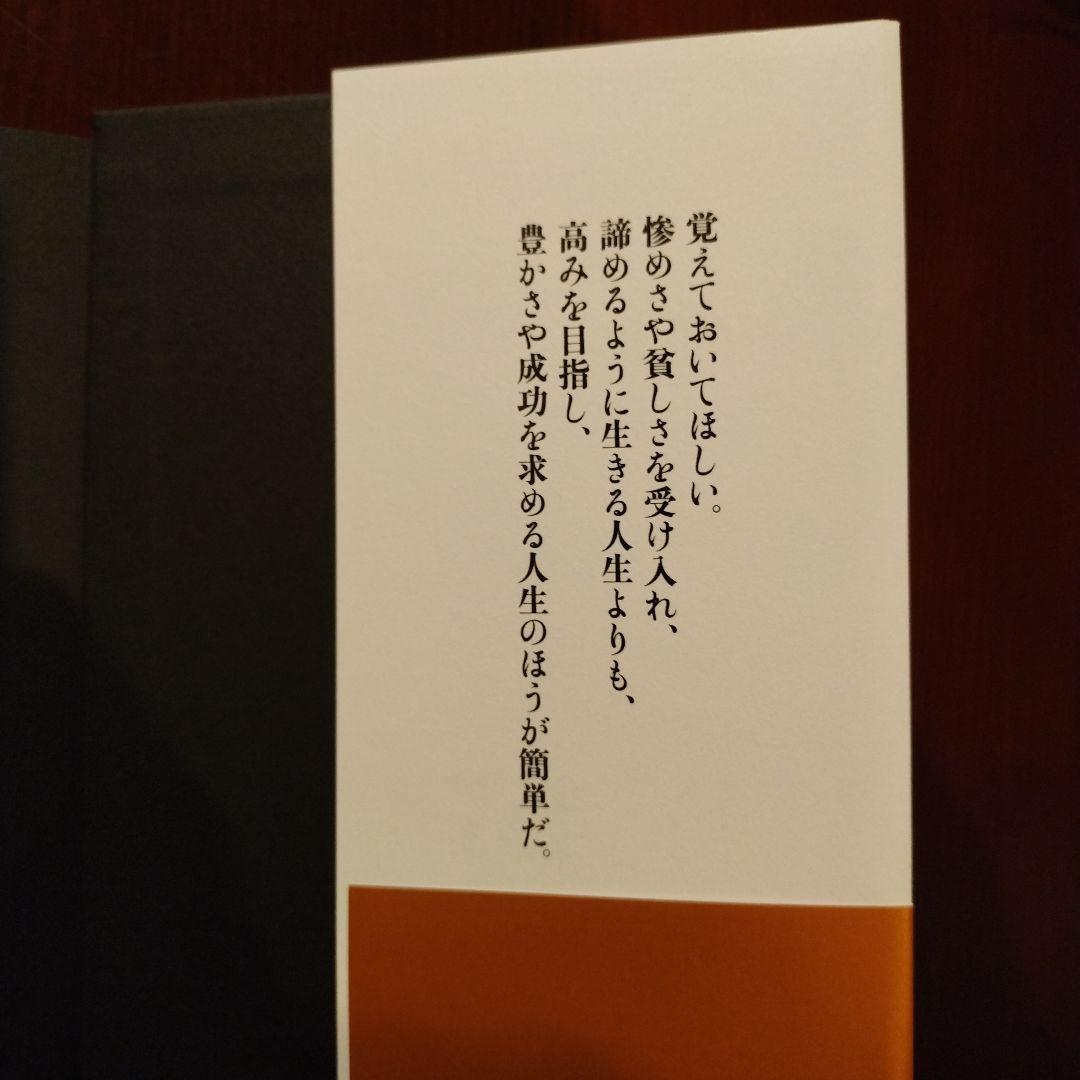 覚えておいてほしい。
惨めさや貧しさを受け入れ、
諦めるように生きる人生よりも、
高みを目指し、
豊かさや成功を求める人生のほうが簡単だ。